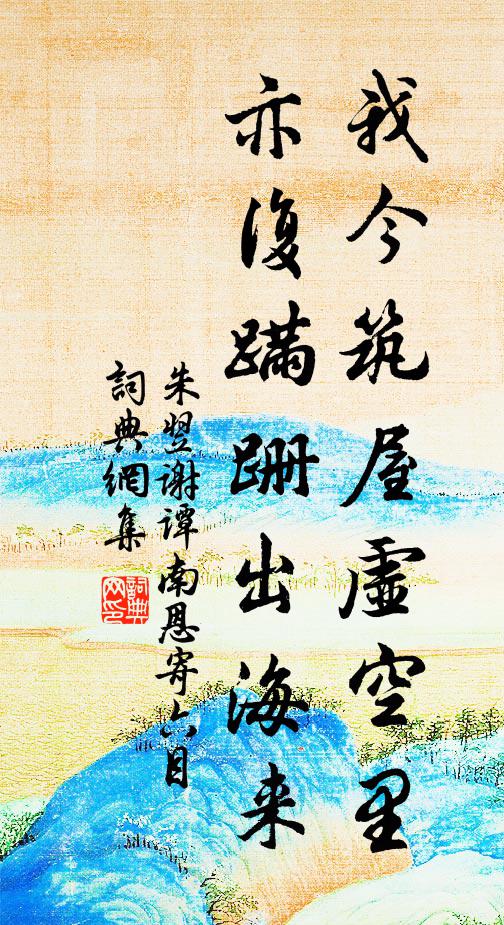 我今筑屋虚空里
亦復蹣跚出海来
朱翌谢谭南恩寄六目
詞典網集
詞典